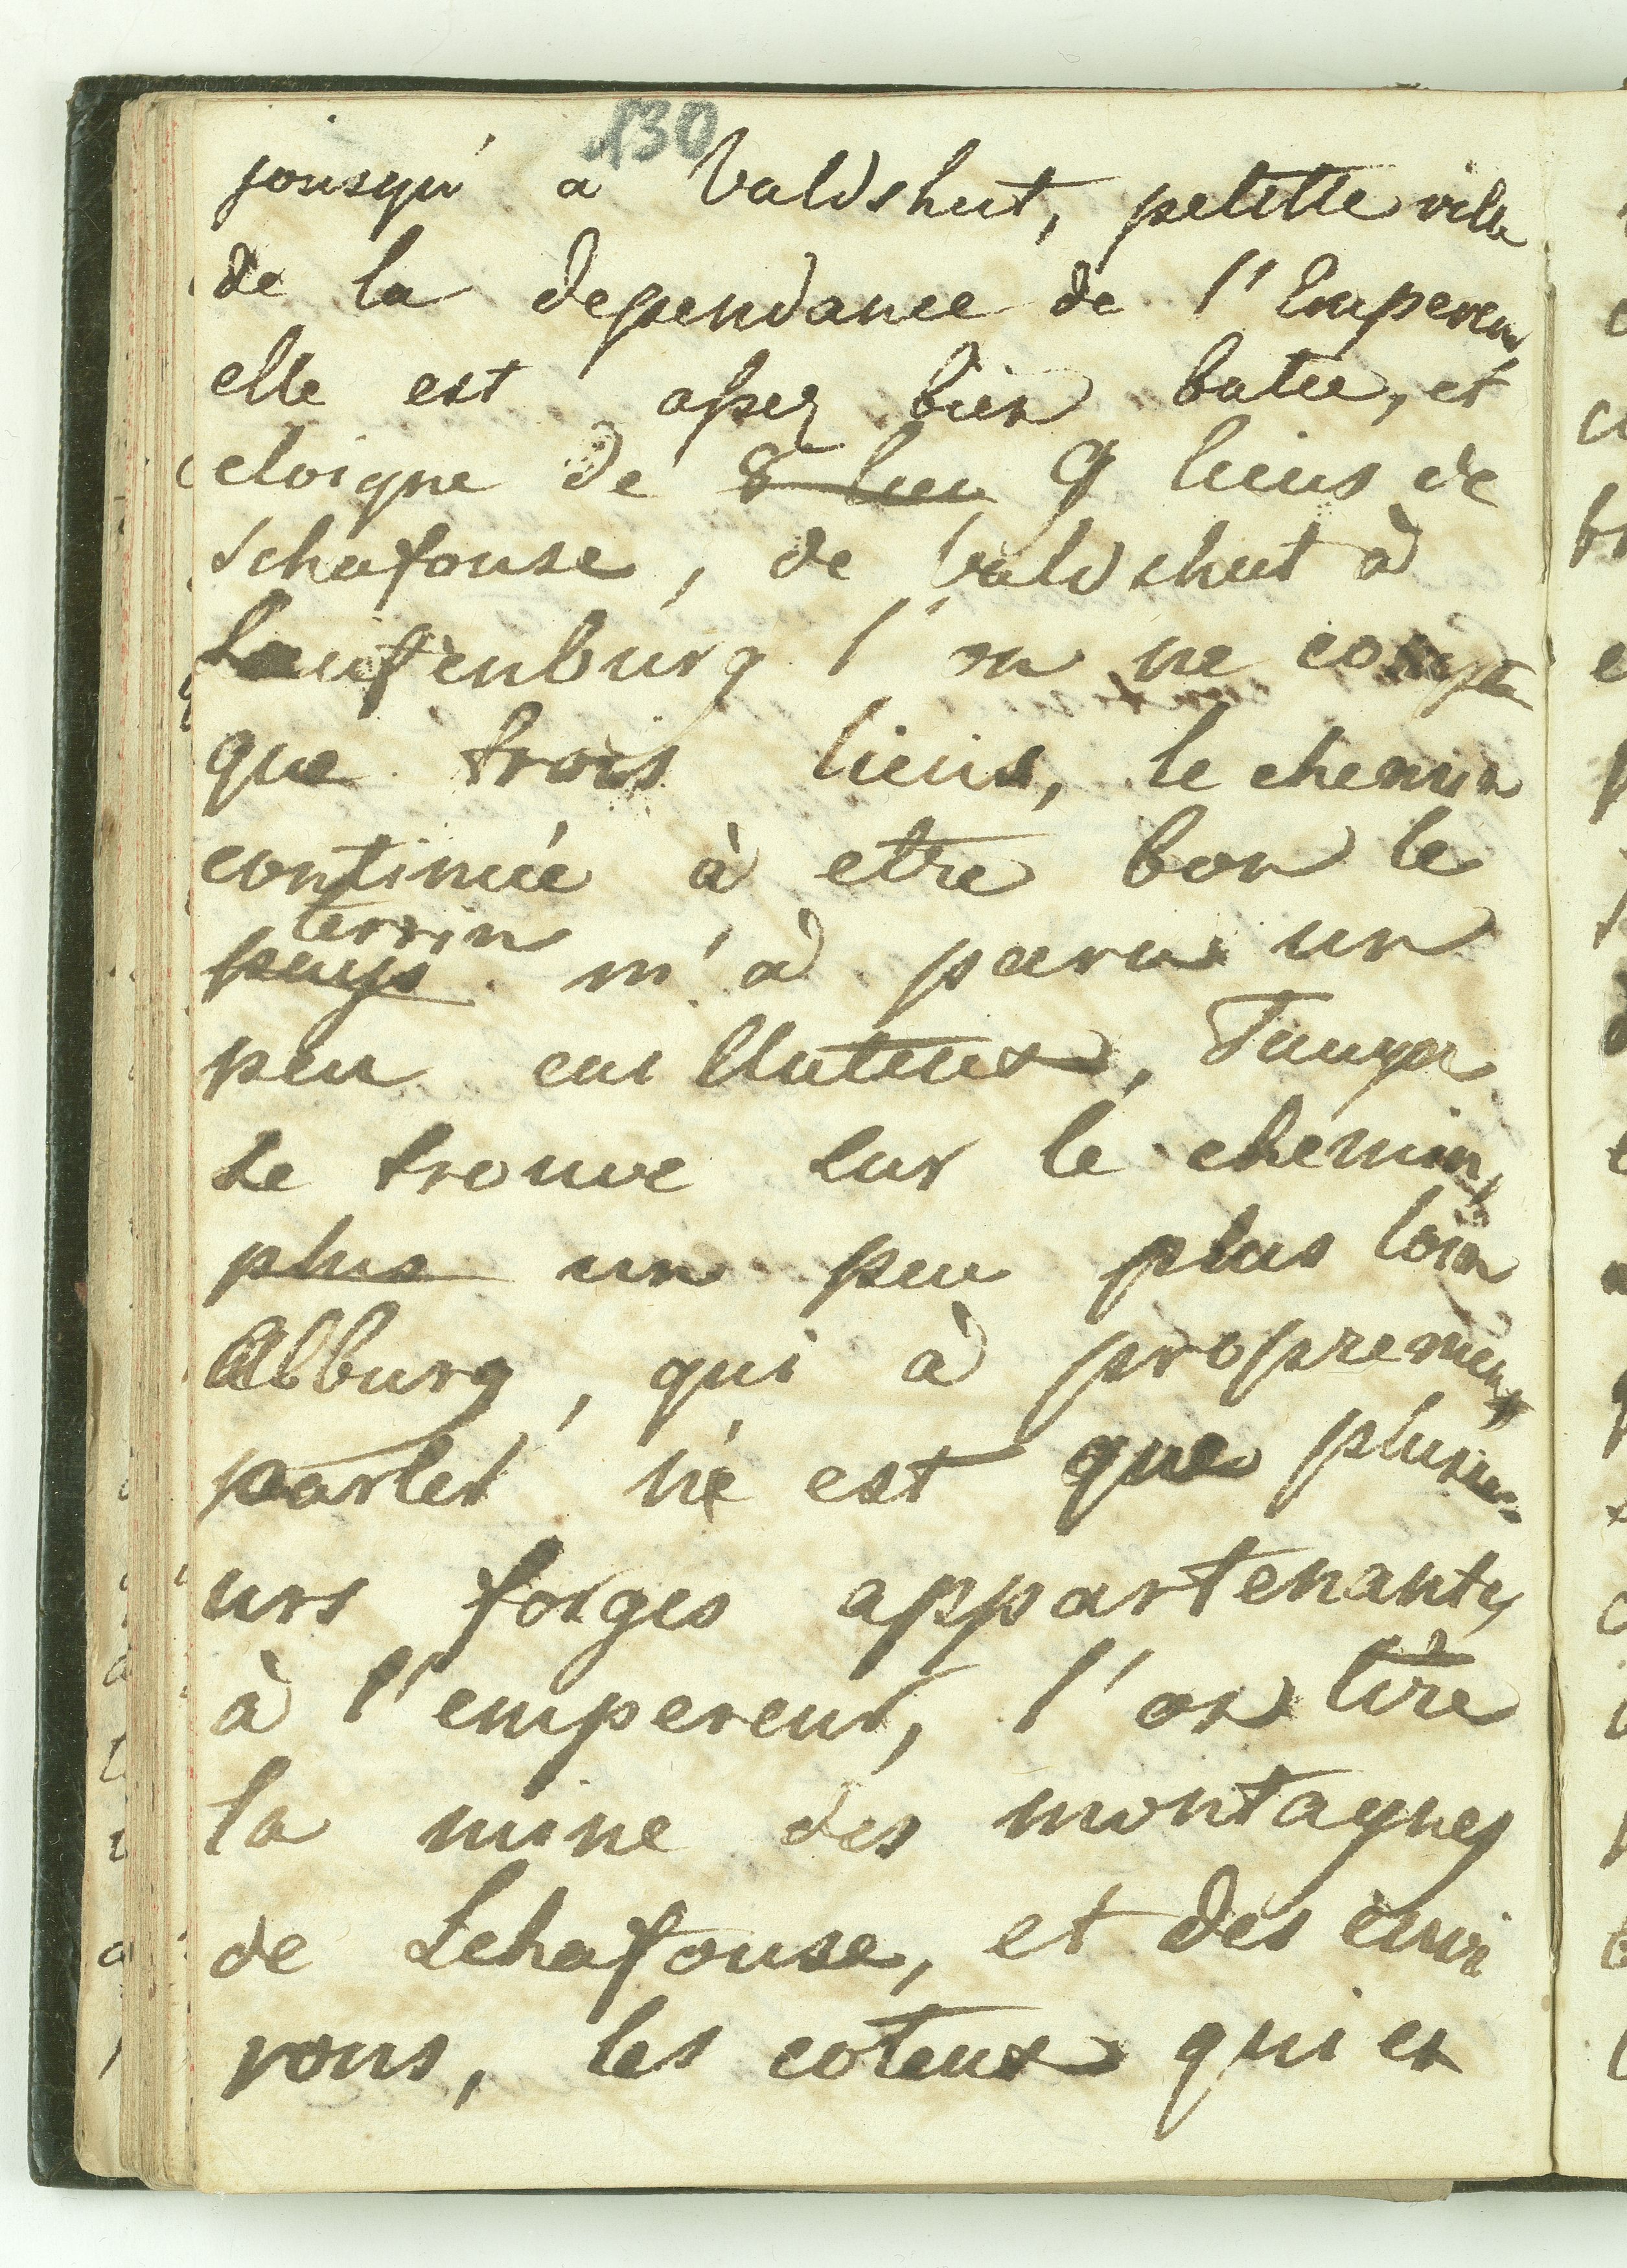 130
jousqu'a Valdshut, petitte ville
de la dependance de l'Empereur
elle est assez bien batie, et
eloigne de 8 lieu 9 lieus de
Schafouse, de Valdshut à
Laufenburg l'on ne compte
que trois lieus, le chemin
continuée à etre bon le
terrin
pays m'à paru un
peu cailluteux,
se trouve sur le chemin,
plus un peu plus loin
Alburg, qui à proprement
parler ne est que plusie-
urs forges appartenants
à l'empereur, l'on tire
la mine des montagnes
de Schafouse, et des envi
rons, les coteux qui en